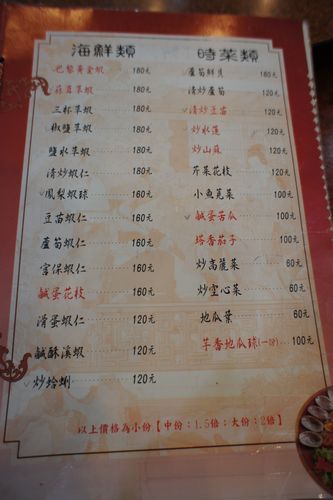 海鮮類
巴黎黃金蝦 180元
蒜眉草蝦 180元
三杯草蝦 180元
椒鹽草蝦 180元
鹽水草蝦 180元
清炒蝦仁 160元
鳳梨蝦球 160元
豆苗蝦仁 160元
蘆筍蝦仁 160元
宮保蝦仁 160元
鹹蛋花枝 160元
滑蛋蝦仁 120元
鹹酥溪蝦 120元
炒蛤蜊 120元
時菜類
蘆筍鮮貝 160元
清炒蘆筍 120元
清炒豆苗 120元
炒水蓮 120元
炒山蘇 120元
芹菜花枝 120元
小魚莧菜 100元
鹹蛋苦瓜 100元
塔香茄子 100元
炒高麗菜 60元
炒空心菜 60元
地瓜葉 60元
芋香地瓜球(一份) 100元
以上價格為小份【中份：1.5倍；大份：2倍】